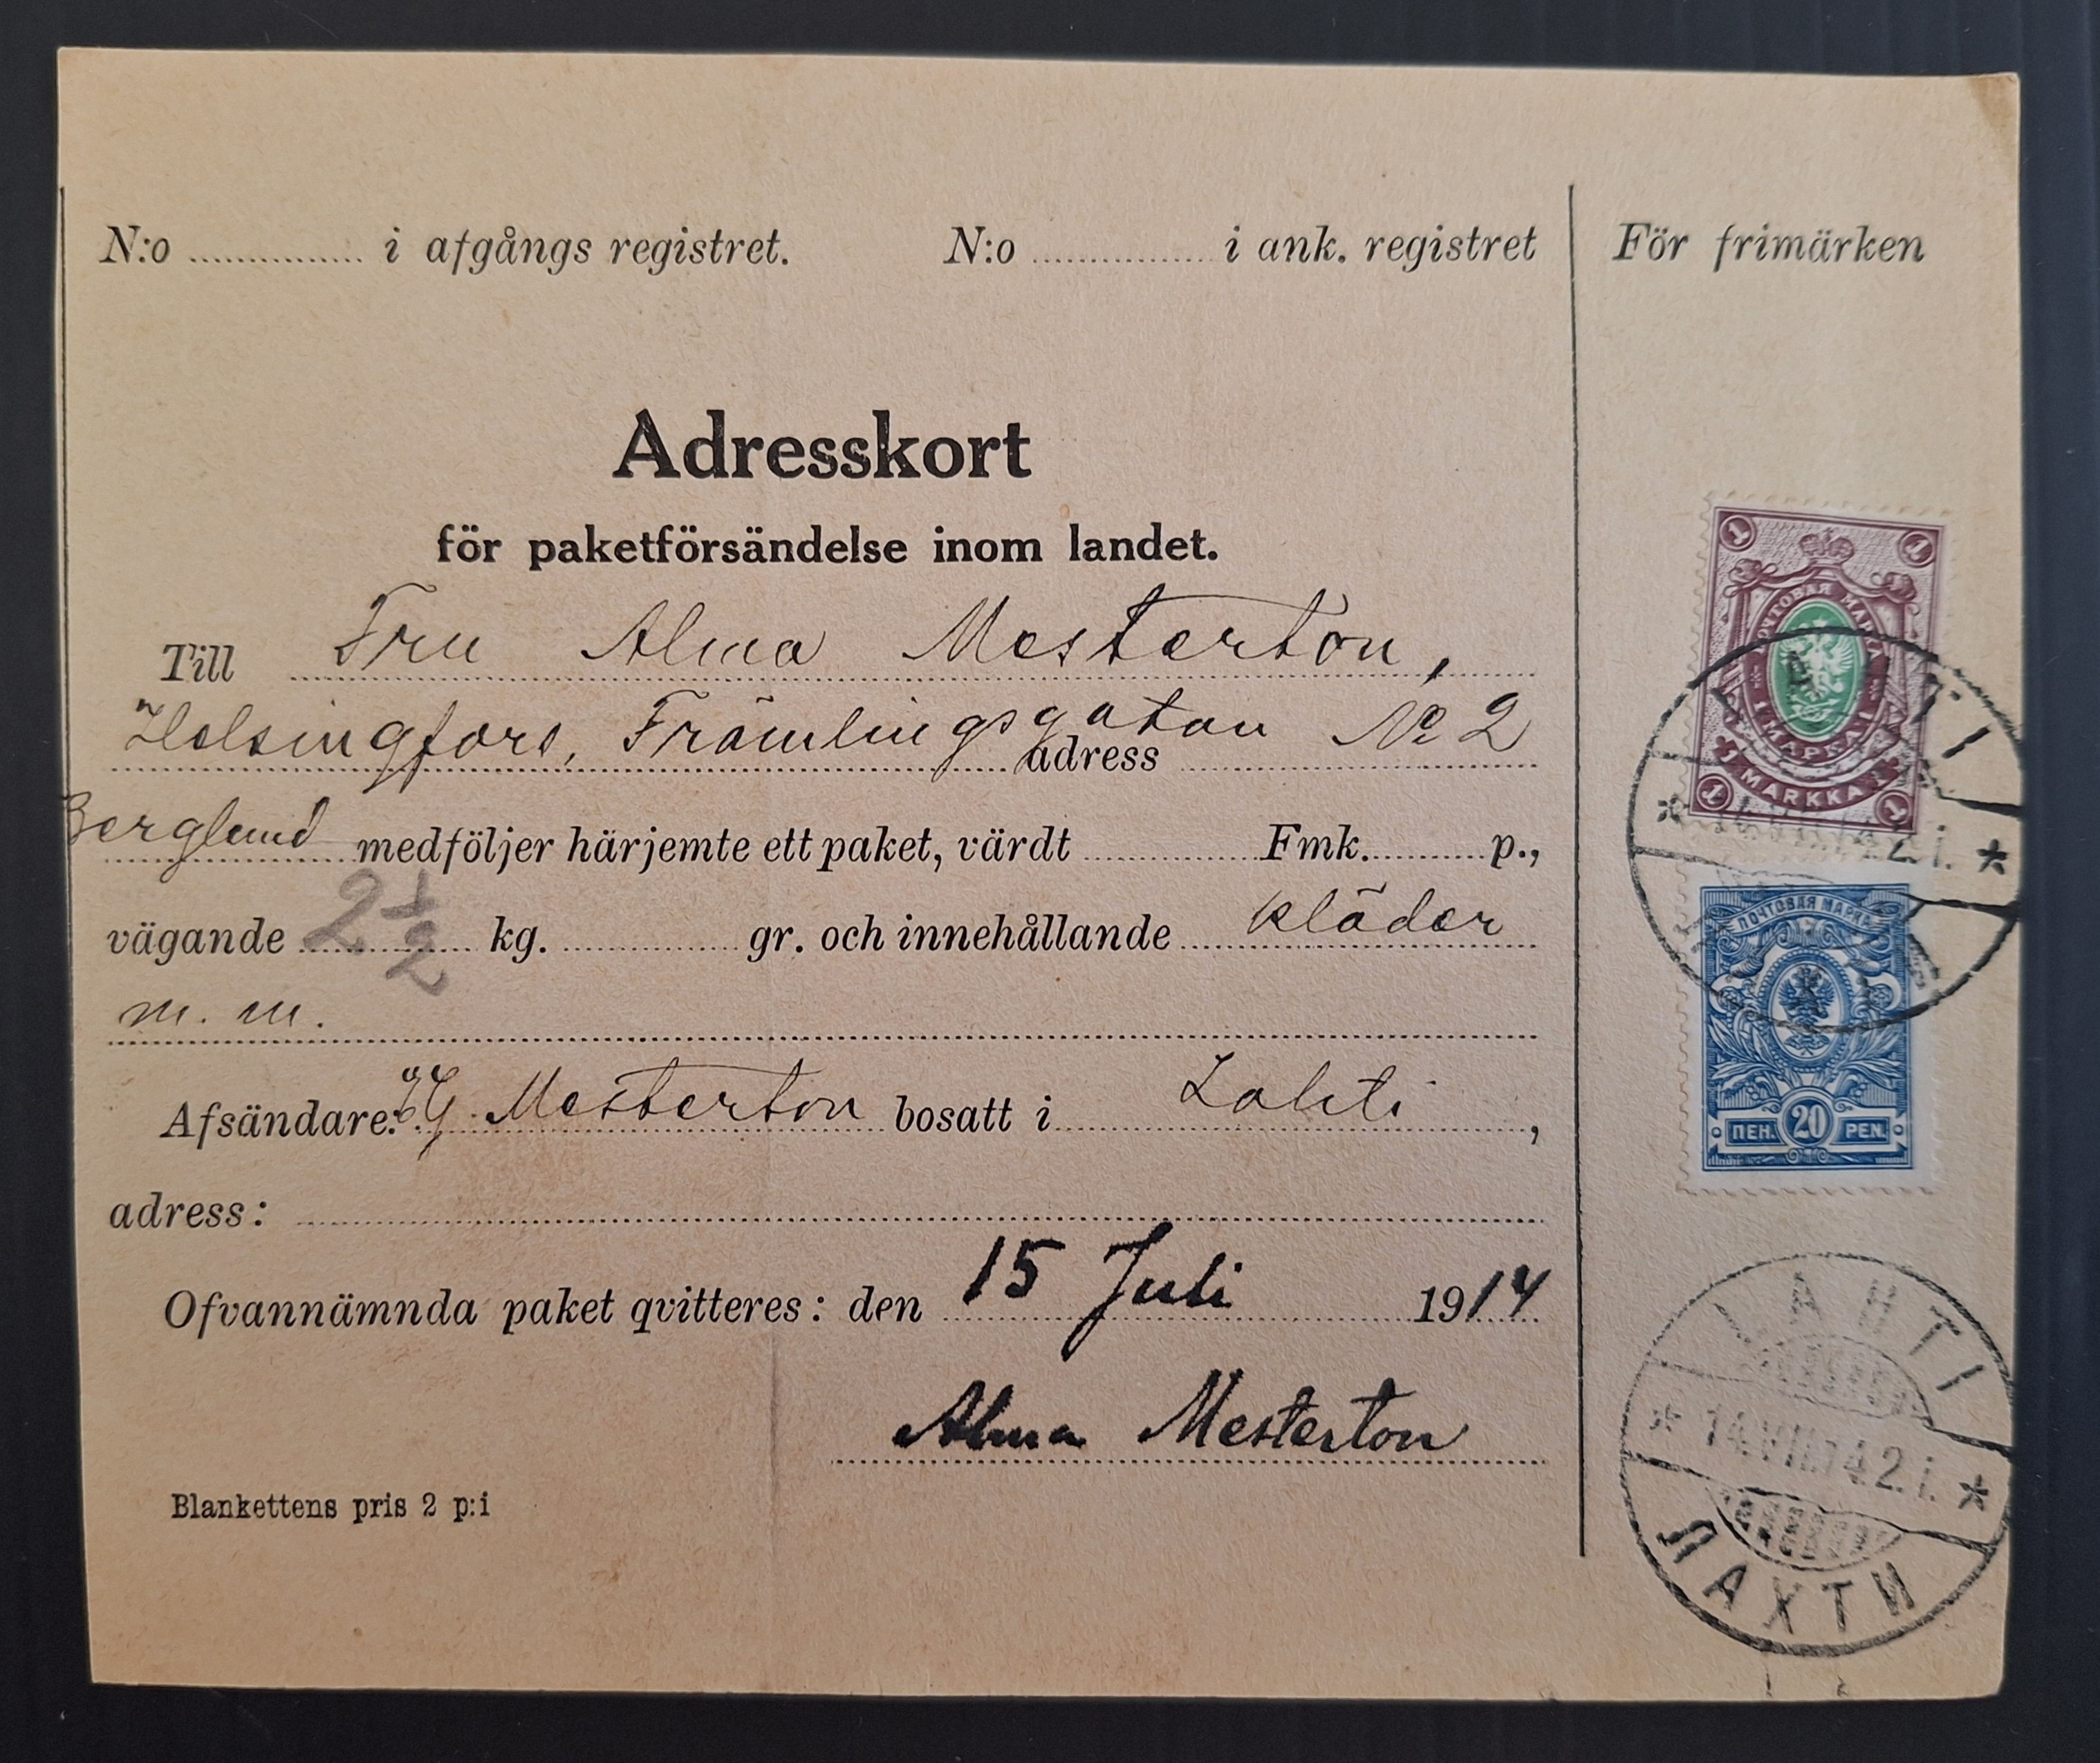 N:o ............... i afgångs registret. N:o ............... i ank. registret
För frimärken
Adresskort
för paketförsändelse inom landet.
Till Fru Alma Mesterton,
Helsingfors, Främlingsgatan No 2
adress
Berglund medföljer härjemte ett paket, värdt ............... Fmk. ............ p.,
vägande 2 1/2 kg. ............... gr. och innehållande kläder
m. m.
Afsändare: Mesterton bosatt i Lahti,
adress:
Ofvannämnda paket qvitteres: den 15 Juli 1914
Alma Mesterton
Blankettens pris 2 p:i
1 1
ПОЧТОВАЯ МАРКА
1 МАРКА 1
MARKKA
1 1
ПОЧТОВАЯ МАРКА
ПЕН. 20 PEN.
LAHTI
* 14.VII.14.2.i. *
ЛАХТИ